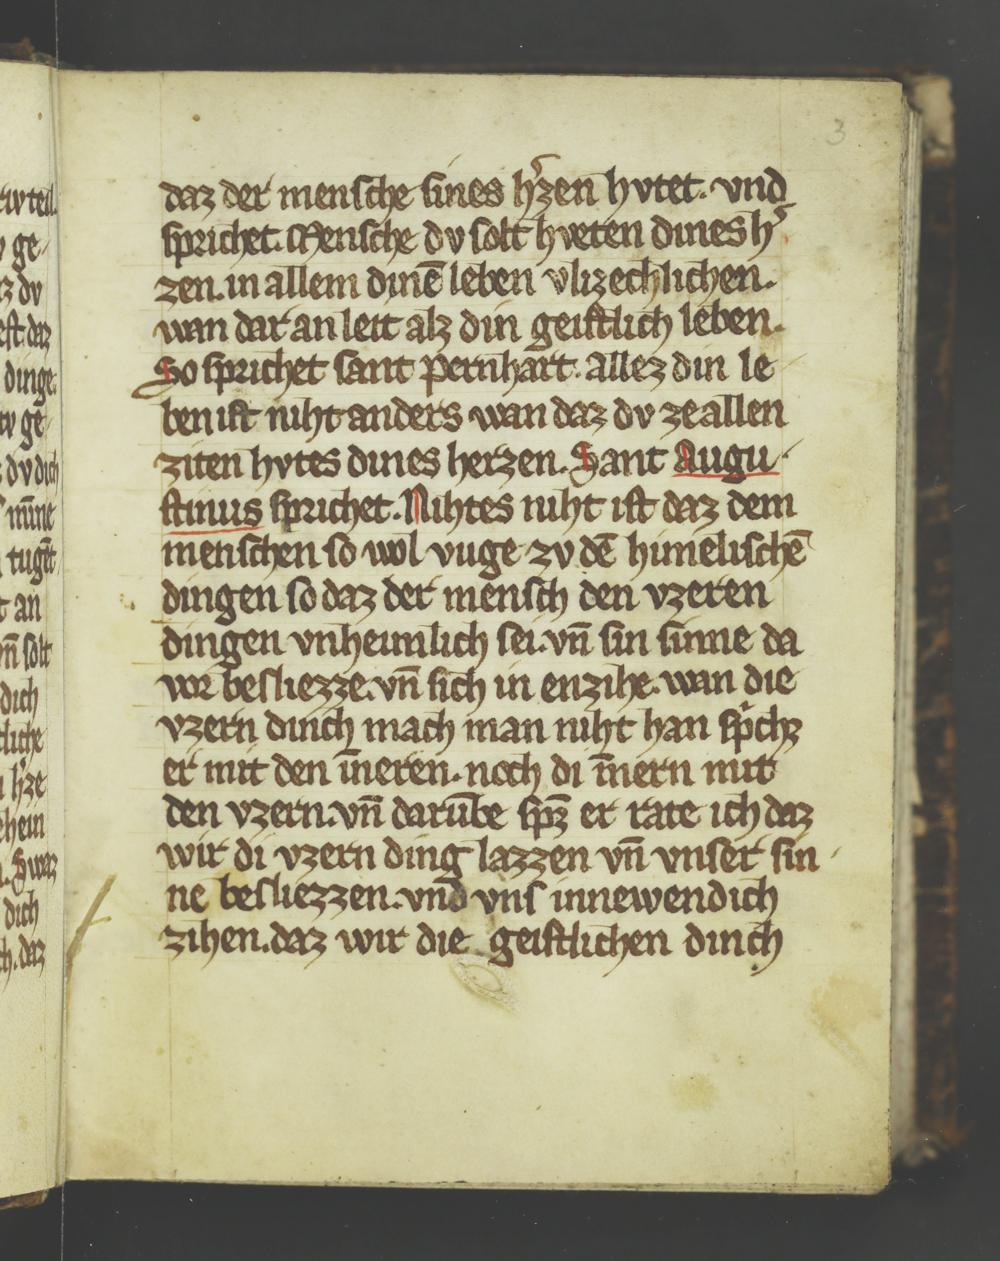 3
daz der mensche sines h̓zen hvtet. vnd
sprichet. Mensche dv solt hveten dines h̓
zen. in allem dinē leben vlizechlichen.
wan dar an leit alz din geistlich leben.
So sprichet sant pernhart. allez din le
ben ist niht anders wan daz dv ze allen
ziten hvtes dines herzen. Sant Augu
stinus sprichet. Nihtes niht ist daz dem
menschen so wol vuge zv dē himelischē
dingen so daz der mensch den vzeren
dingen vnheimlich sei. vn̄ sin sinne da
vor besliezze. vn̄ sich in enzihe. wan die
vzern dinch mach man niht han sp̓chz
er mit den īneren. noch di īnern mit
den vzern. vn̄ darūbe spz̄ er rate ich daz
wir di vzern ding lazzen vn̄ vnser sin
ne besliezzen. vnd vns innewendich
zihen. daz wir die geistlichen dinch